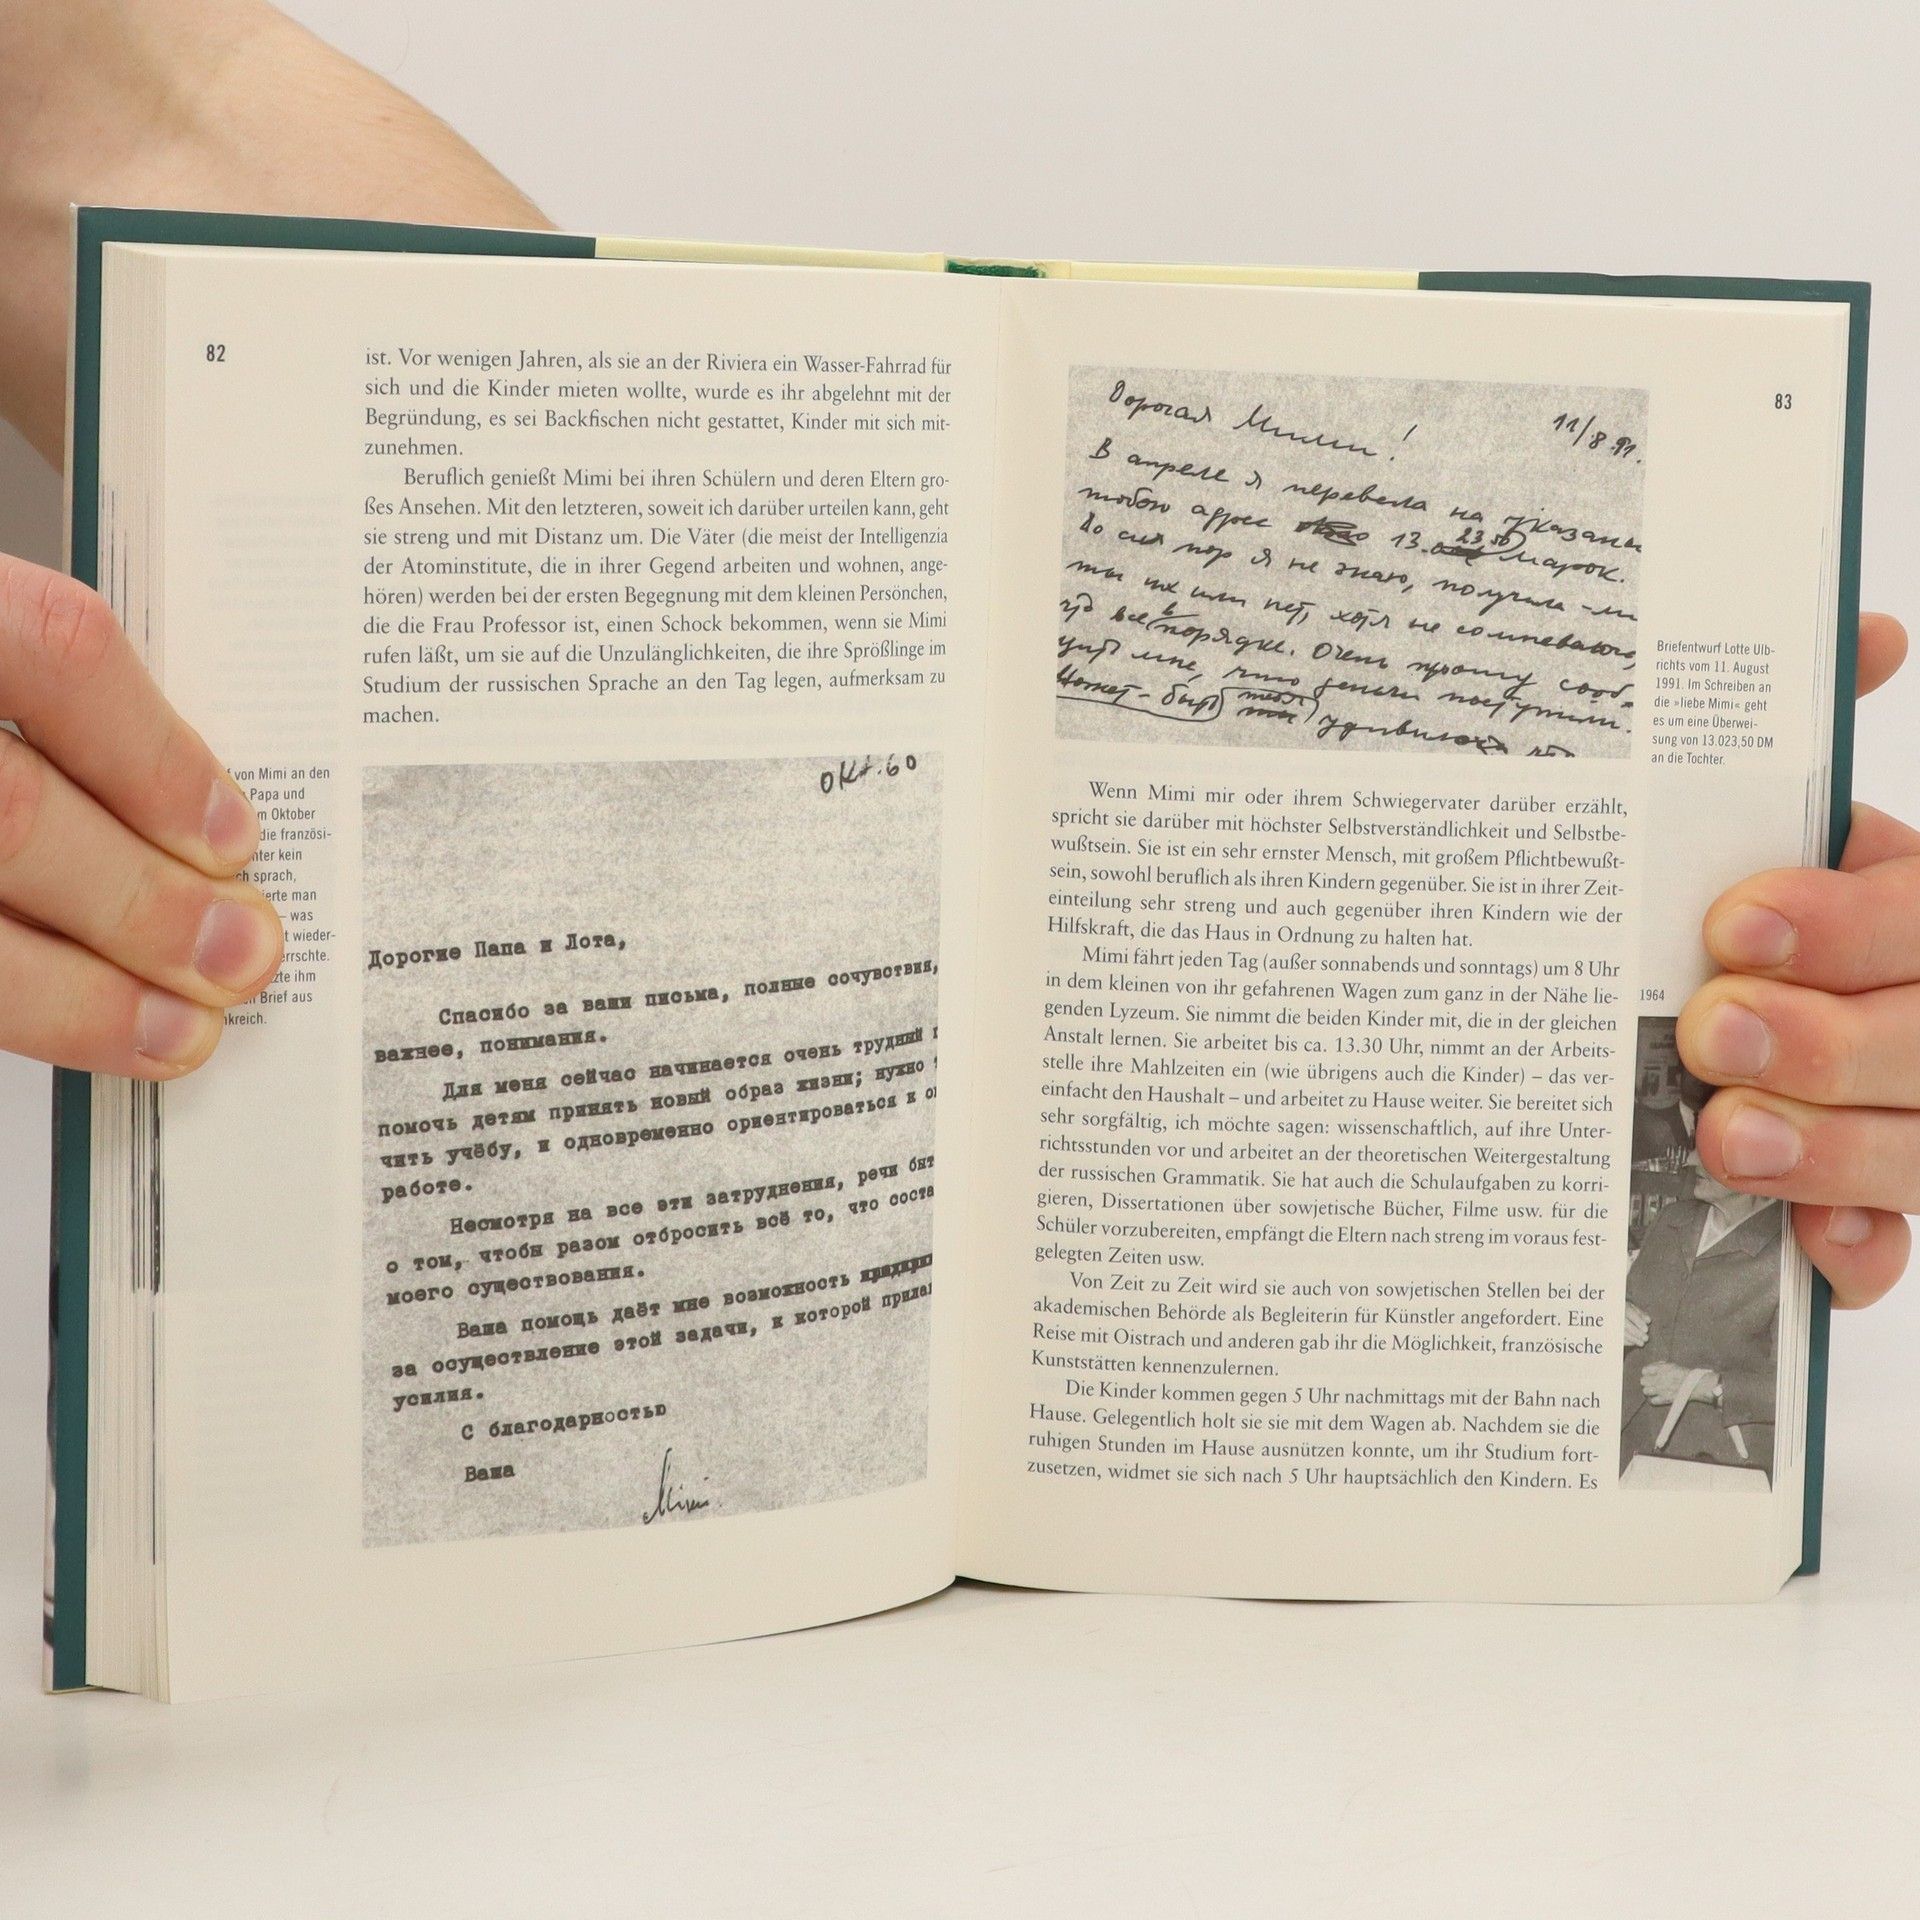 82
ist. Vor wenigen Jahren, als sie an der Riviera ein Wasser-Fahrrad für
sich und die Kinder mieten wollte, wurde es ihr abgelehnt mit der
Begründung, es sei Backfischen nicht gestattet, Kinder mit sich mit-
zunehmen.
Beruflich genießt Mimi bei ihren Schülern und deren Eltern gro-
ßes Ansehen. Mit den letzteren, soweit ich darüber urteilen kann, geht
sie streng und mit Distanz um. Die Väter (die meist der Intelligenzia
der Atominstitute, die in ihrer Gegend arbeiten und wohnen, ange-
hören) werden bei der ersten Begegnung mit dem kleinen Persönchen,
die die Frau Professor ist, einen Schock bekommen, wenn sie Mimi
rufen läßt, um sie auf die Unzulänglichkeiten, die ihre Sprößlinge im
Studium der russischen Sprache an den Tag legen, aufmerksam zu
machen.
von Mimi an den
Papa und
Oktober
die französi-
kein
sprach,
man
– was
wieder-
ihm
Brief aus
окт. 60
Дорогие Папа и Лота,
Спасибо за ваши письма, полные сочувствия,
важнее, понимания.
Для меня сейчас начинается очень трудный
помочь детям принять новый образ жизни; нужно
чить учёбу, и одновременно ориентироваться в
работе.
Несмотря на все эти затруднения, речи
о том, чтобы разом отбросить всё то, что
моего существования.
Ваша помощь даёт мне возможность
за осуществление этой задачи, к которой
усилия.
С благодарностью
Ваша
Mimi
83
Дорогая Мими!
11/8.91.
В апреле я перевела на
тобою адрес 13. 23.50 марок.
До сих пор я не знаю, получила-ли
ты их или нет, хотя не сомневаюсь,
что все в порядке. Очень прошу сооб-
щить мне, что деньги поступили.
Может-быть тебя удивило
Briefentwurf Lotte Ulb-
richts vom 11. August
1991. Im Schreiben an
die »liebe Mimi« geht
es um eine Überwei-
sung von 13.023,50 DM
an die Tochter.
Wenn Mimi mir oder ihrem Schwiegervater darüber erzählt,
spricht sie darüber mit höchster Selbstverständlichkeit und Selbstbe-
wußtsein. Sie ist ein sehr ernster Mensch, mit großem Pflichtbewußt-
sein, sowohl beruflich als ihren Kindern gegenüber. Sie ist in ihrer Zeit-
einteilung sehr streng und auch gegenüber ihren Kindern wie der
Hilfskraft, die das Haus in Ordnung zu halten hat.
Mimi fährt jeden Tag (außer sonnabends und sonntags) um 8 Uhr
in dem kleinen von ihr gefahrenen Wagen zum ganz in der Nähe lie-
genden Lyzeum. Sie nimmt die beiden Kinder mit, die in der gleichen
Anstalt lernen. Sie arbeitet bis ca. 13.30 Uhr, nimmt an der Arbeits-
stelle ihre Mahlzeiten ein (wie übrigens auch die Kinder) – das ver-
einfacht den Haushalt – und arbeitet zu Hause weiter. Sie bereitet sich
sehr sorgfältig, ich möchte sagen: wissenschaftlich, auf ihre Unter-
richtsstunden vor und arbeitet an der theoretischen Weitergestaltung
der russischen Grammatik. Sie hat auch die Schulaufgaben zu korri-
gieren, Dissertationen über sowjetische Bücher, Filme usw. für die
Schüler vorzubereiten, empfängt die Eltern nach streng im voraus fest-
gelegten Zeiten usw.
Von Zeit zu Zeit wird sie auch von sowjetischen Stellen bei der
akademischen Behörde als Begleiterin für Künstler angefordert. Eine
Reise mit Oistrach und anderen gab ihr die Möglichkeit, französische
Kunststätten kennenzulernen.
Die Kinder kommen gegen 5 Uhr nachmittags mit der Bahn nach
Hause. Gelegentlich holt sie sie mit dem Wagen ab. Nachdem sie die
ruhigen Stunden im Hause ausnützen konnte, um ihr Studium fort-
zusetzen, widmet sie sich nach 5 Uhr hauptsächlich den Kindern. Es
1964